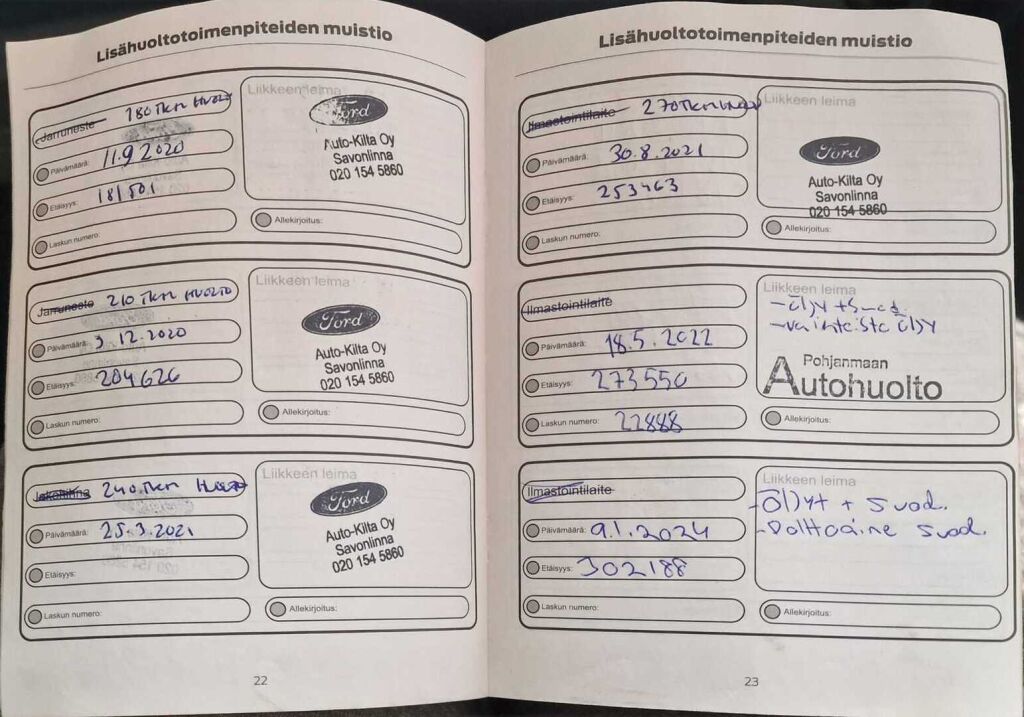 Lisähuoltotoimenpiteiden muistio
Jarruneste 180 TKM HUOLTO
Liikkeen leima
Ford
Auto-Kilta Oy
Savonlinna
020 154 5860
Päivämäärä: 11.9 2020
Etäisyys: 181501
Laskun numero:
Allekirjoitus:
Jarruneste 210 TKM HUOLTO
Liikkeen leima
Ford
Auto-Kilta Oy
Savonlinna
020 154 5860
Päivämäärä: 3.12.2020
Etäisyys: 204626
Laskun numero:
Allekirjoitus:
240 TKM HUOLTO
Liikkeen leima
Ford
Auto-Kilta Oy
Savonlinna
020 154 5860
Päivämäärä: 25.3.2021
Etäisyys:
Laskun numero:
Allekirjoitus:
22
Lisähuoltotoimenpiteiden muistio
Ilmastointilaite 270 TKM
Liikkeen leima
Ford
Auto-Kilta Oy
Savonlinna
020 154 5860
Päivämäärä: 30.8.2021
Etäisyys: 253463
Laskun numero:
Allekirjoitus:
Ilmastointilaite
Liikkeen leima
- öljy +
- vaihteisto öljy
Pohjanmaan
Autohuolto
Päivämäärä: 18.5.2022
Etäisyys: 273550
Laskun numero: 22888
Allekirjoitus:
Ilmastointilaite
Liikkeen leima
- Öljyt + suod.
- Polttoaine suod.
Päivämäärä: 9.1.2024
Etäisyys: 302188
Laskun numero:
Allekirjoitus:
23